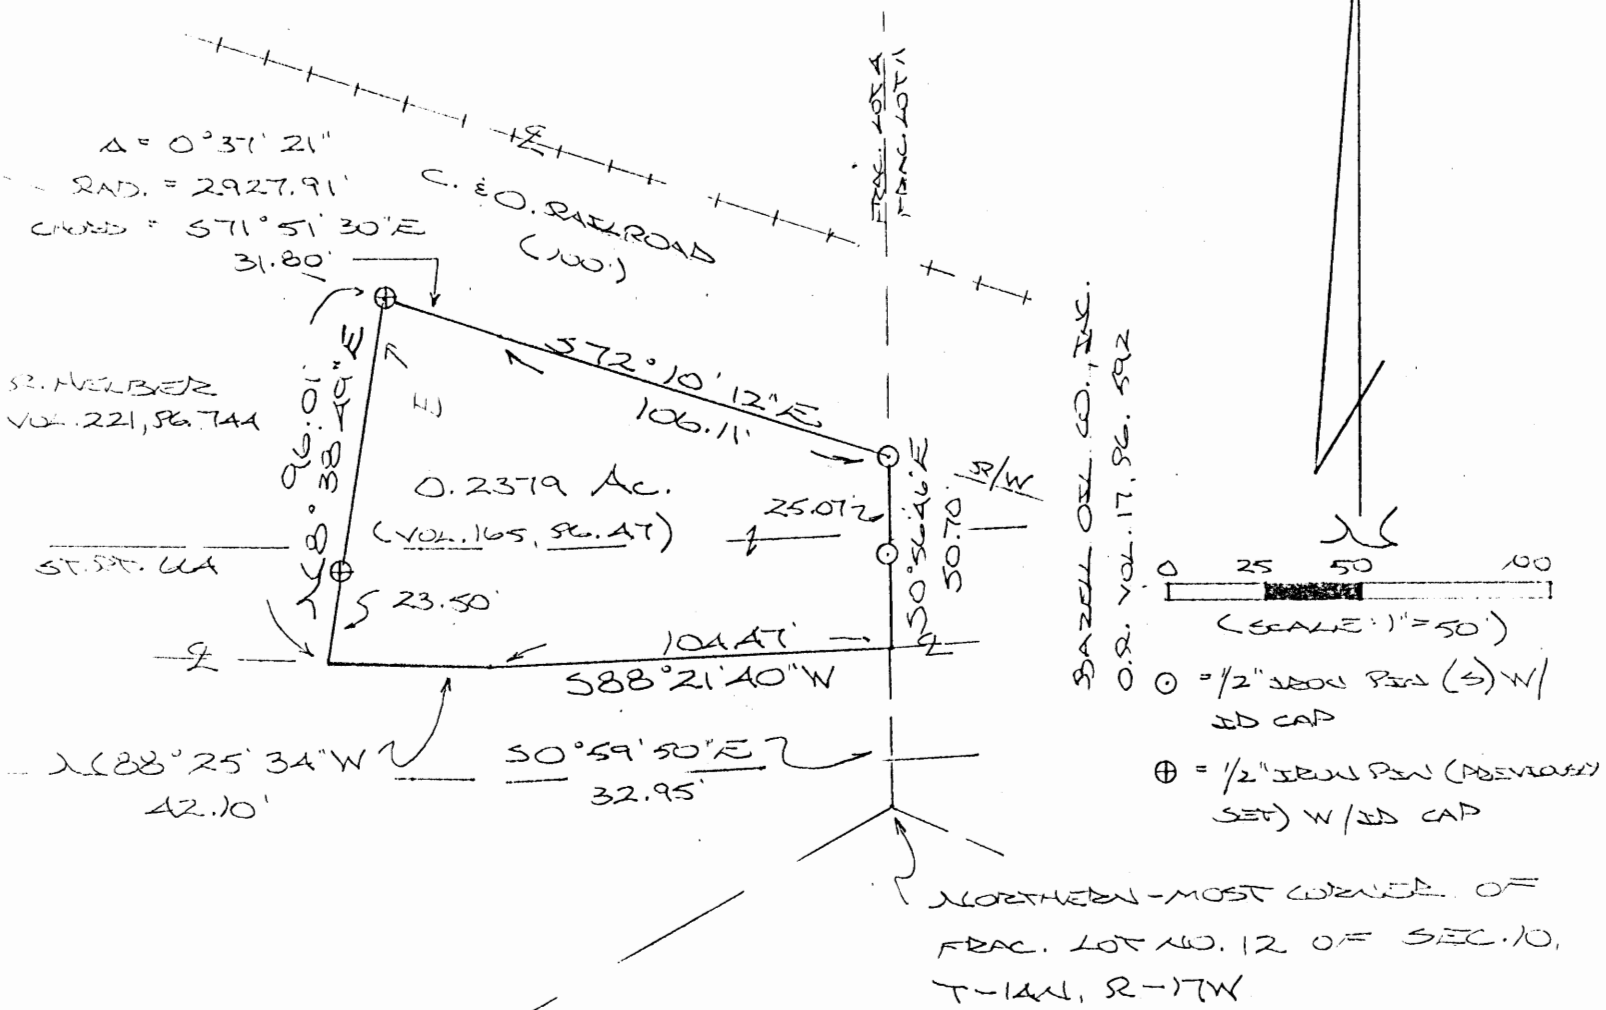 FRAC. LOT 4
FRAC. LOT 11
Δ = 0°37'21"
RAD. = 2927.91'
CHORD = S71°51'30"E
31.80'
C. & O. RAILROAD
(100')
℄
S72°10'12"E
106.11'
R. HELBER
VOL. 221, PG. 744
96.01'
N8°38'49"E
0.2379 Ac.
(VOL. 165, PG. 47)
25.07'
S0°56'46"E
50.70'
R/W
BAZELL OIL CO., INC.
O.R. VOL. 17, PG. 592
ST. RT. 664
23.50'
℄
104.47'
℄
S88°21'40"W
N88°25'34"W
42.10'
S0°59'50"E
32.95'
N
0 25 50 100
(SCALE: 1"=50')
⊙ = 1/2" IRON PIN (S) W/
ID CAP
⊕ = 1/2" IRON PIN (PREVIOUSLY
SET) W/ID CAP
NORTHERN-MOST CORNER OF
FRAC. LOT NO. 12 OF SEC. 10,
T-14N, R-17W